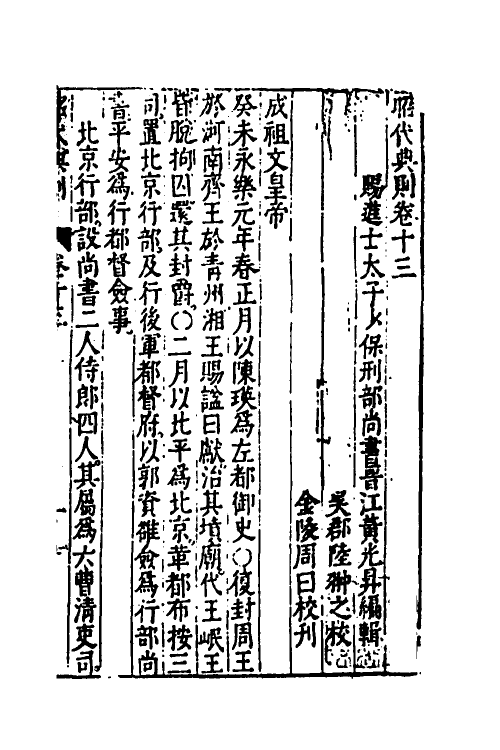 昭代典則卷十三
賜進士太子少保刑部尚書晉江黃光昇編輯
吳郡陸翀之校
金陵周曰校刊
成祖文皇帝
癸未永樂元年春正月以陳瑛爲左都御史〇復封周王
於河南齊王於青州湘王賜謚曰獻治其墳廟代王岷王
皆脫拘囚還其封爵〇二月以北平爲北京革都布按三
司置北京行部及行後軍都督府以郭資雒僉爲行部尚
書平安爲行都督僉事
北京行部設尚書二人侍郎四人其屬爲六曹清吏司